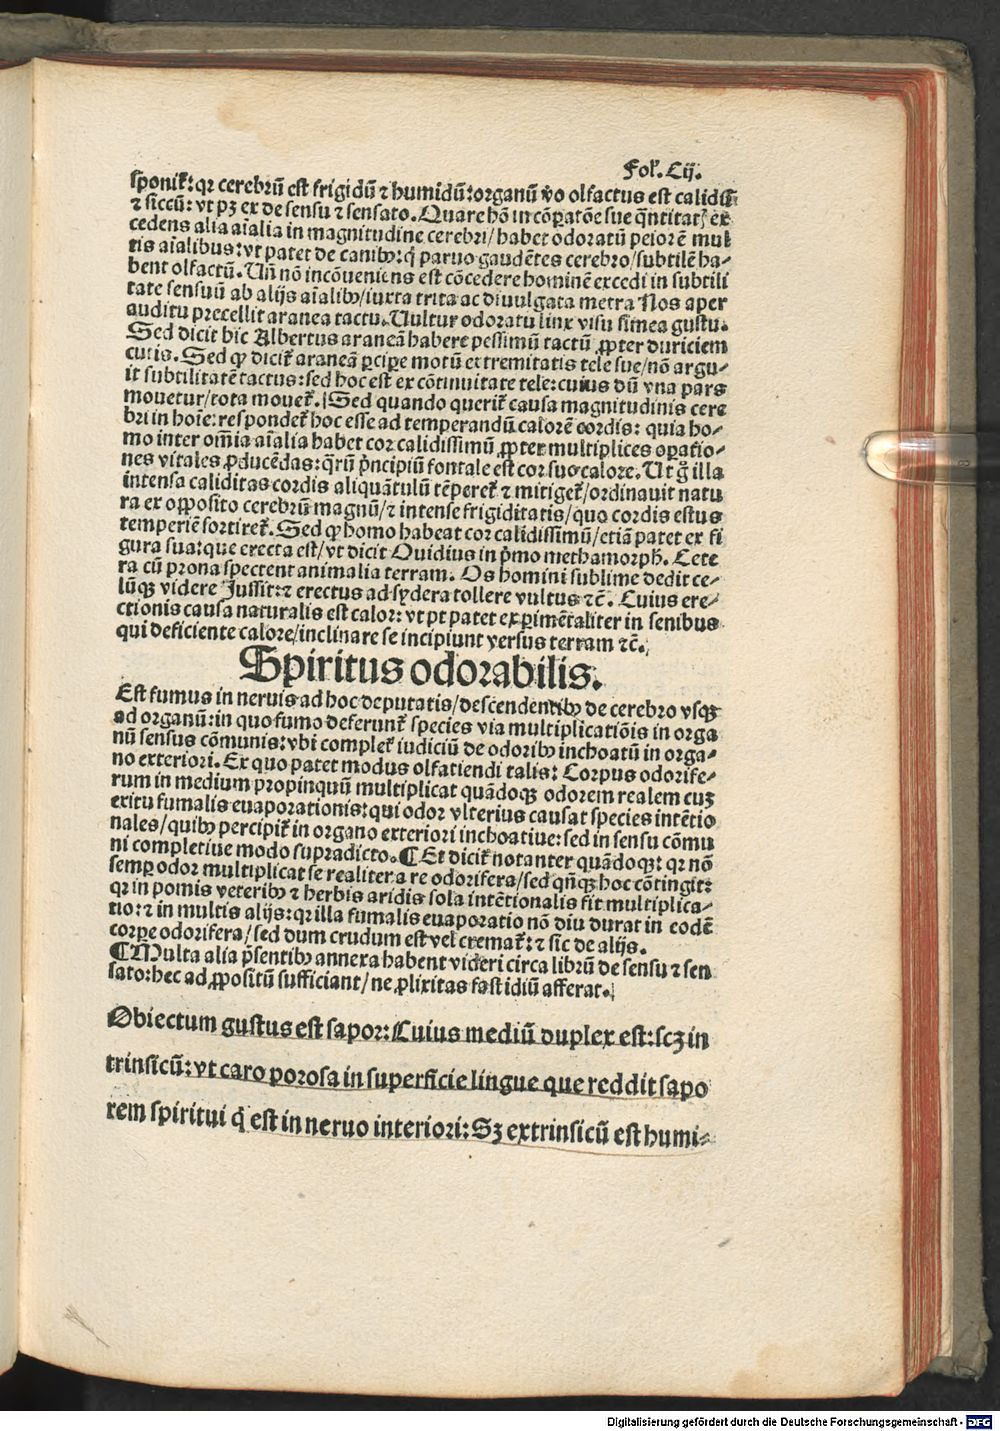 Fol. Cij.
sponit᷑: qꝛ cerebrū est frigidū ⁊ humidū: organū v̄o olfactus est calidū
⁊ siccū: vt pꝫ ex de sensu ⁊ sensato. Quare hō in cōꝑatōe sue q̄ntitat} ex
cedens alia aīalia in magnitudine cerebri/ habet odoratū peiorē mul
tis aīalibus: vt patet de canibꝰ: q̇ paruo gaudētes cerebro/ subtilē ha⸗
bent olfactū. Un̄ nō incōueniens est cōcedere hominē excedi in subtili
tate sensuū ab alijs aīalibꝰ/ iuxta trita ac diuulgata metra Nos aper
auditu precellit aranea tactu. Uultur odoratu linx visu simea gustu.
Sed dicit hic Albertus araneā habere pessimū tactū ꝓpter duriciem
cutis. Sed ꝙ dicit᷑ araneā ꝑcipe motū et tremitatis tele sue/ nō argu⸗
it subtilitatē tactus: sed hoc est ex cōtinuitate tele: cuius dū vna pars
mouetur/ tota mouet᷑. Sed quando querit᷑ causa magnitudinis cere
bri in hoīe: respondet᷑ hoc esse ad temperandū calorē cordis: quia ho⸗
mo inter om̄ia aīalia habet cor calidissimū ꝓpter multiplices oꝑatio⸗
nes vitales ꝓducēdas: q̄rū p̄ncipiū fontale est cor suo calore. Ut g̊ illa
intensa caliditas cordis aliquātulū tēperet᷑ ⁊ mitiget᷑/ ordinauit natu
ra ex opposito cerebrū magnū/ ⁊ intense frigiditatis/ quo cordis estus
temperiē sortiret᷑. Sed ꝙ homo habeat cor calidissimū/ etiā patet ex fi
gura sua: que erecta est/ vt dicit Ouidius in p̄mo methamorph. Cete
ra cū prona spectent animalia terram. Os homini sublime dedit ce⸗
lūqꝫ videre Jussit: ⁊ erectus ad sydera tollere vultus ⁊c̄. Cuius ere⸗
ctionis causa naturalis est calor: vt pt patet exꝑimētaliter in senibus
qui deficiente calore/ inclinare se incipiunt versus terram ⁊c̄.
Spiritus odorabilis.
Est fumus in neruis ad hoc deputatis/ descendentibꝰ de cerebro vsqꝫ
ad organū: in quo fumo deferunt᷑ species via multiplicatiōis in orga
nū sensus cōmunis: vbi complet᷑ iudiciū de odoribꝰ inchoatū in orga⸗
no exteriori. Ex quo patet modus olfatiendi talis: Corpus odorife⸗
rum in medium propinquū multiplicat quādoqꝫ odorem realem cuꝫ
exitu fumalis euaporationis: qui odor vlterius causat species intētio
nales/ quibꝰ percipit᷑ in organo exteriori inchoatiue: sed in sensu cōmu
ni completiue modo supradicto. ¶ Et dicit᷑ notanter quādoqꝫ: qꝛ nō
semꝑ odor multiplicat se realiter a re odorifera/ sed qn̄qꝫ hoc cōtingit:
qꝛ in pomis veteribꝰ ⁊ herbis aridis sola intētionalis fit multiplica⸗
tio: ⁊ in multis alijs: qꝛ illa fumalis euaporatio nō diu durat in eodē
corꝑe odorifera/ sed dum crudum est vel cremat᷑: ⁊ sic de alijs.
¶ Multa alia p̄sentibꝰ annexa habent videri circa librū de sensu ⁊ sen
sato: hec ad ꝓpositū sufficiant/ ne ꝓlixitas fastidiū afferat.
Obiectum gustus est sapor: Cuius mediū duplex est: scꝫ in
trinsicū: vt caro porosa in superficie lingue que reddit sapo
rem spiritui q̇ est in neruo interiori: Sꝫ extrinsicū est humi⸗
Digitalisierung gefördert durch die Deutsche Forschungsgemeinschaft - DFG